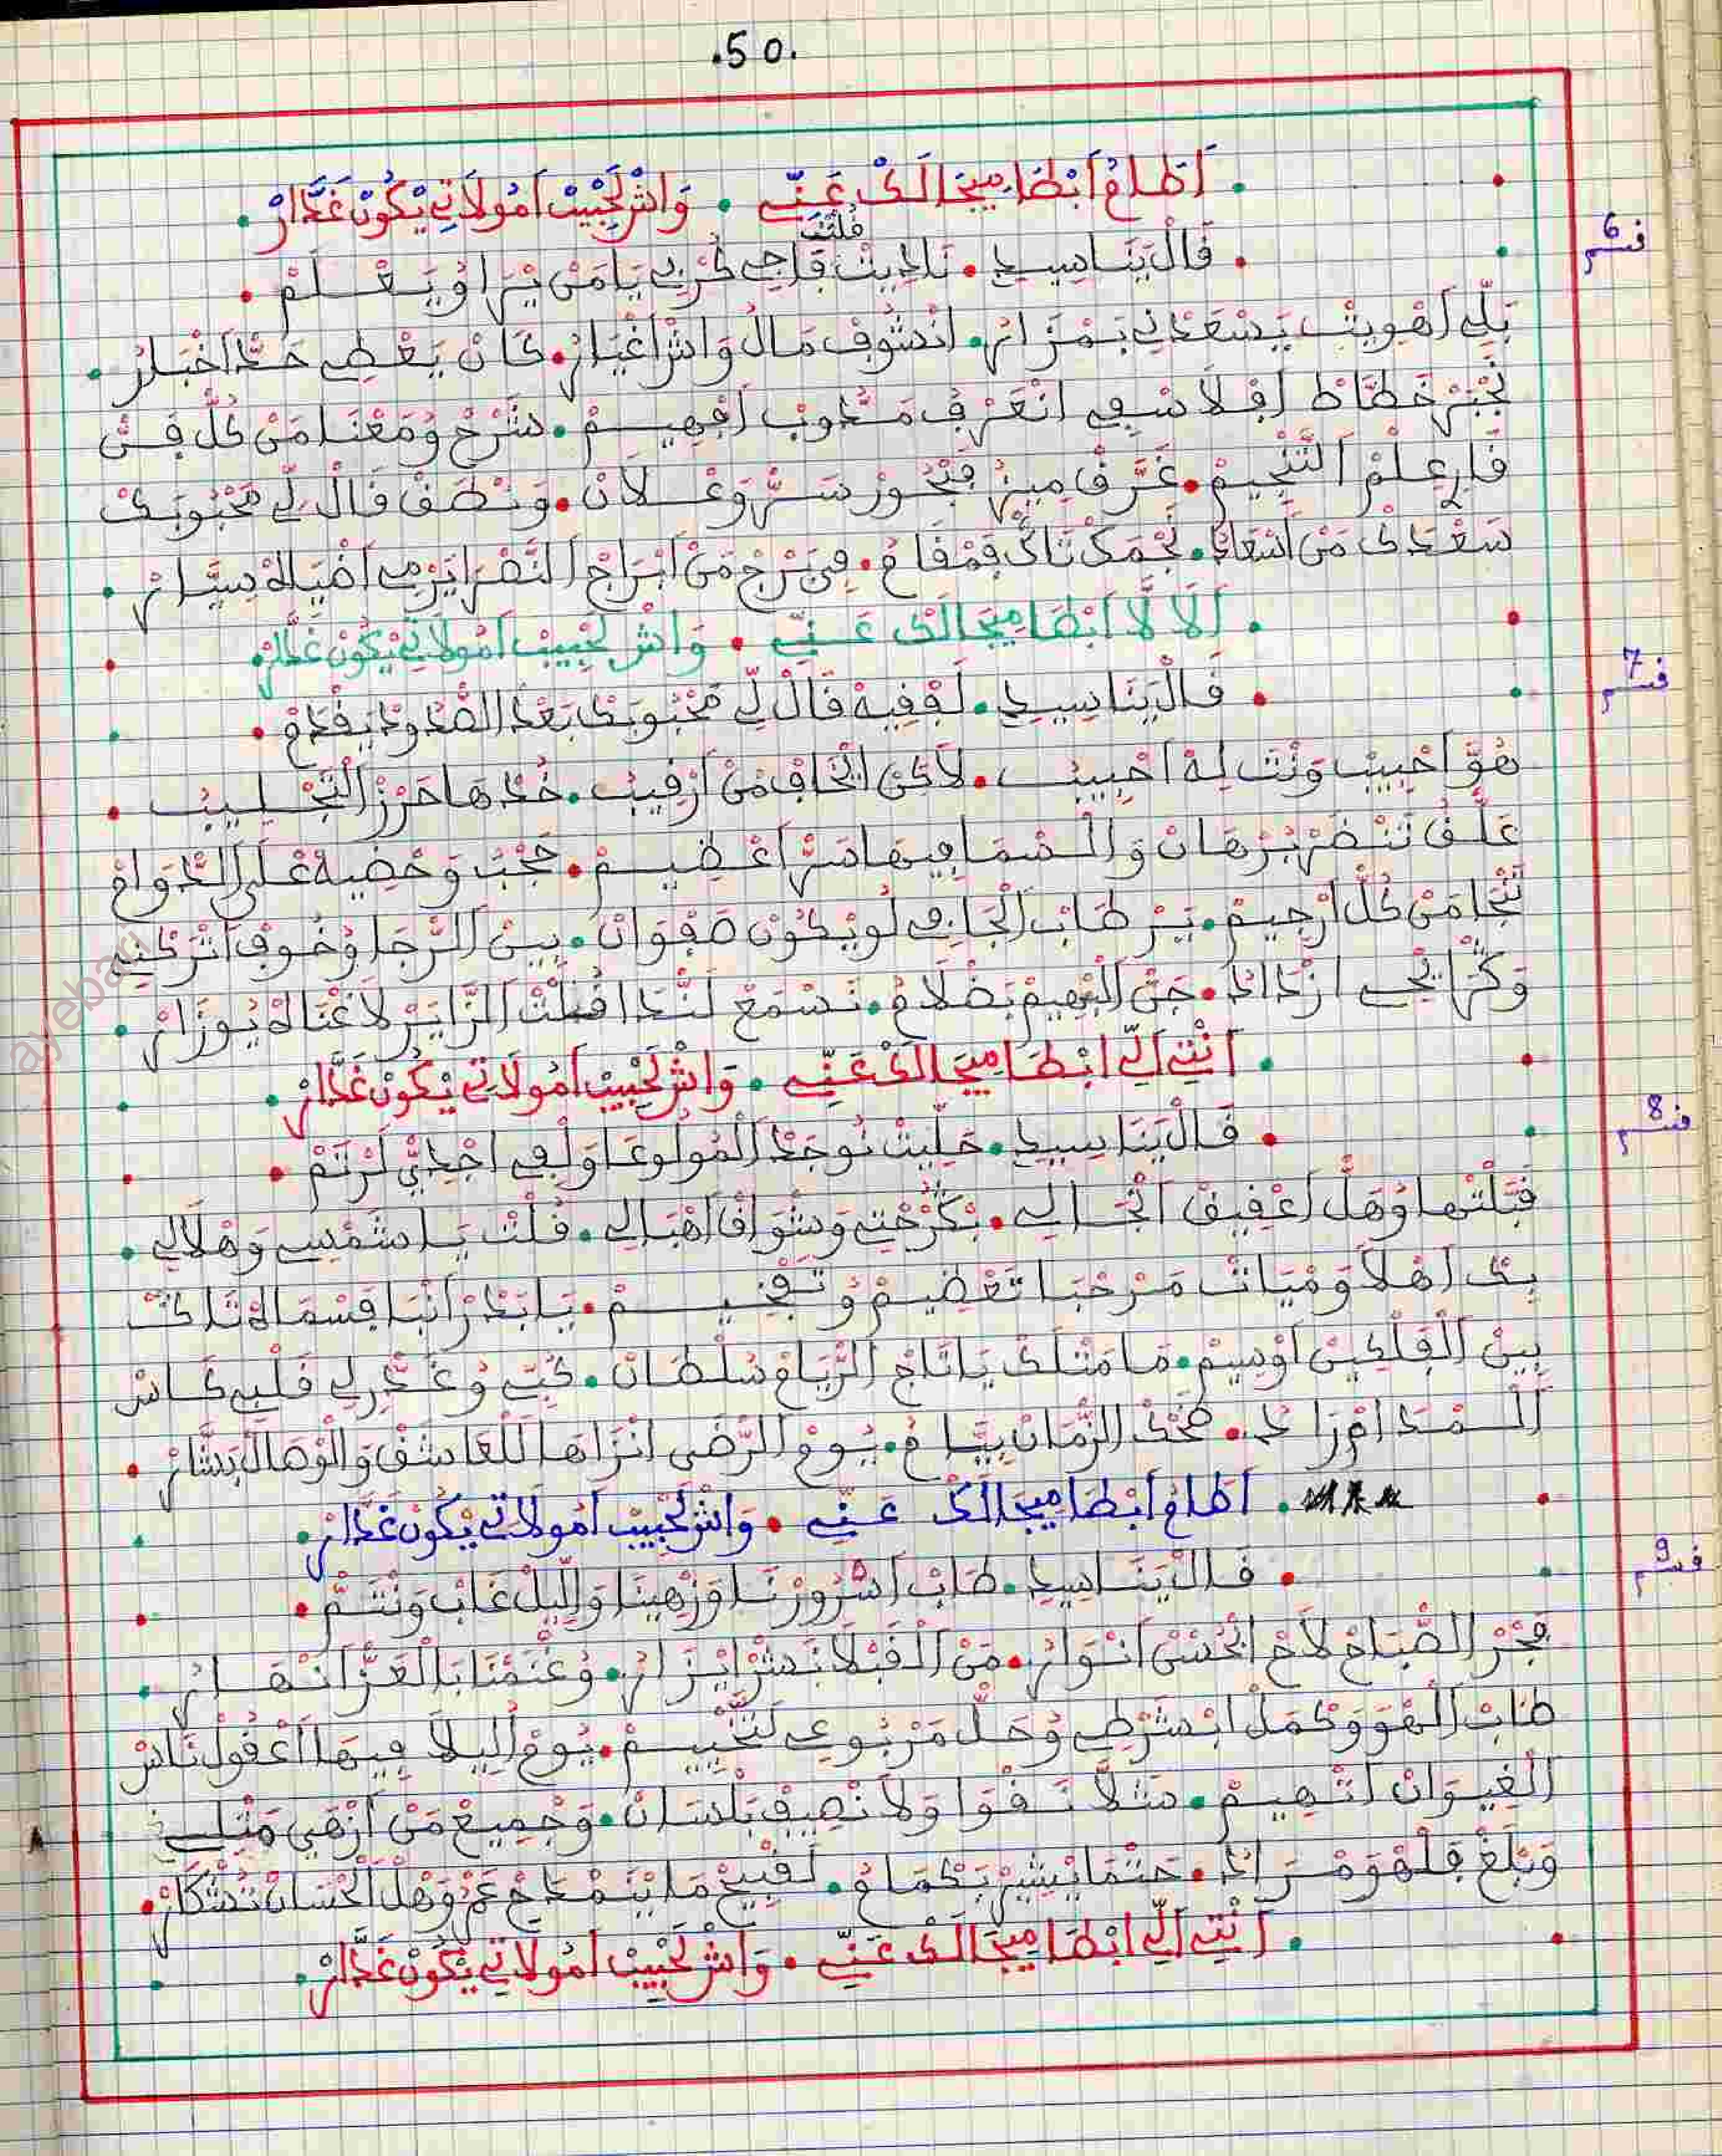 .50.
أَطْلَعْ اَبْطَا مِيجَالَكْ عَنِّي . وَاشْ لَحْبِيبْ اَمُولَاتِي يْكُونْ غَدَّارْ .
قسم 6
. قَالْ يَنَاسِيدِي . نَادِيتْ قُلْتْ فَاجِي كُرْبِي يَا مَنْ يْرَا وُ يَعْلَمْ .
بَلِّي اَهْوِيتْ يَسْعَدْنِي بَمْزَارُ . انْشُوفْ مَالُ وَاشْ اَغْيَارُ . كَانْ يَعْطِي حَدّْ اَخْبَارُ .
نَجْبَرْ خَطَّاطْ اَفْلَاسْفِي انْعَرْفُ مَنْدُوبْ اَفْهِيمْ . شَرْحْ وُ مَعْنَا مَنْ كُلّْ فَنّْ
قَارِي عِلْمْ التَّنْجِيمْ . غَرَّفْ مِنْهْ فَبْحُورْ سَرّْ وَعْلَانْ . وَنْطَقْ قَالْ لِي مَحْبُوبَكْ
سَعْدَكْ مَنْ اَسْعَادُ . نَجْمَكْ تَاكْ فَمْقَامُ . فِي بَرْجْ مَنْ اَبْرَاجْ النَّصْرَا يَرْمِي اَضْيَاهْ سِيَّارْ .
. اَلَا لَّا اَبْطَا مِيجَالَكْ عَنِّي . وَاشْ لَحْبِيبْ اَمُولَاتِي يْكُونْ غَدَّارْ .
قسم 7
. قَالْ يَنَاسِيدِي . لَفْقِيهْ قَالْ لِي مَحْبُوبَكْ بَعْدْ الصُّدُودْ يَقْدَمْ .
هُوَّ اَحْبِيبْ وَنْتَ لِهْ اَحْبِيبْ . لَاكَنْ اتْخَافْ مَنْ اَرْقِيبْ . خُدْ هَا حَرْزْ التَّجْلِيبْ .
عَلّْقُ تَنْضَرْ بُرْهَانْ وَالسْمَا فِيهَا سَرّْ اَعْضِيمْ . حَجْبُ وَحْضِيهْ عْلَى الدّْوَامْ
تَنْجَا مَنْ كُلّْ اَرْجِيمْ . يَرْطَابْ الْجَافِي لُو يْكُونْ صَفْوَانْ . بِينْ الرّْجَا وُ خُوفْ اَتْرَكْنِي
وَكْرَا يْجِي ازْدَادْ . جَنّْ الْبْهِيمْ بَضْلَامُ . نَسْمَعْ لَنْدَا قُلْتْ الزَّايَرْ لَاغْنَاهْ يُوزَارْ .
. اَنْتِي اَلِّي اَبْطَا مِيجَالَكْ عَنِّي . وَاشْ لَحْبِيبْ اَمُولَاتِي يْكُونْ غَدَّارْ .
قسم 8
. قَالْ يَنَاسِيدِي . حَلِّيتْ نُوجَدْ الْمُولُوعَا وَلْفِي اَجْدِيّْ لَرْتَمْ .
قَبَّلْتْهَا وُ هَلّْ اَعْقِيقْ انْجَالِي . بَكْرِحْتِي وَشْوَاقْ اَهْبَالِي . قُلْتْ يَا شَمْسِي وَهْلَالِي .
بِكْ اَهْلَا وَمْيَاتْ مَرْحْبَا تَعْضِيمْ وُ تَفْخِيمْ . يَا بَدْرْ اَنْبَا فَسْمَاهْ تَاكْ
بِينْ الْفَلْكِينْ اَوْسِيمْ . مَا مَتْلَكْ يَا تَاجْ الرِّيَامْ سُلْطَانْ . كُبِّي وُ عَمّْرِي لِي قَلْبِي كَاسْ
الْمْدَامْ زَادُ . ضَحْكْ الزّْمَانْ بِيَّامُ . يُومْ الرَّضَى انْزَاهَا لَلْعَاشَقْ وَالْوْصَالْ بَشَّارْ .
. اَطْلَعْ اَبْطَا مِيجَالَكْ عَنِّي . وَاشْ لَحْبِيبْ اَمُولَاتِي يْكُونْ غَدَّارْ .
قسم 9
. قَالْ يَنَاسِيدِي . طَابْ اَسْرُورْنَا وَزْهِينَا وَاللِّيلْ غَابْ وَنْتَمّْ .
فَجْرْ الصّْبَاحْ لَاحْ الْحُسْنْ اَنْوَارُ . مَنْ الْقَبْلَا بَشْرْ ايْزَارُ . وُ غْنَمْنَا بَالْعَزّْ اَنْهَارُ .
طَابْ الْهْوَ وَكْمَلْ ابْشَرْطِي وُ حَلّْ مَرْبُوعِي لَتْخِيمْ . يُومْ اُلِيلَا فِيهَا اَعْقُولْ نَاسْ
الْغِيوَانْ اَتْهِيمْ . مَتْلَا نَقْوَا وَلَا نْصِيفْ بَلْسَانْ . وَجْمِيعْ مَنْ اَزْهَى مَتْلِي
وَبْلَغْ قَلْبُ وَمْرَادُ . حَتْمَا يْشِيرْ بَكْمَامُ . لَقْبِيحْ مَا يْنَمْدَحْ عَمْرُ وَهْلْ الْحْسَانْ تُشْكَارْ .
. اَنْتِي اَلِّي اَبْطَا مِيجَالَكْ عَنِّي . وَاشْ لَحْبِيبْ اَمُولَاتِي يْكُونْ غَدَّارْ .